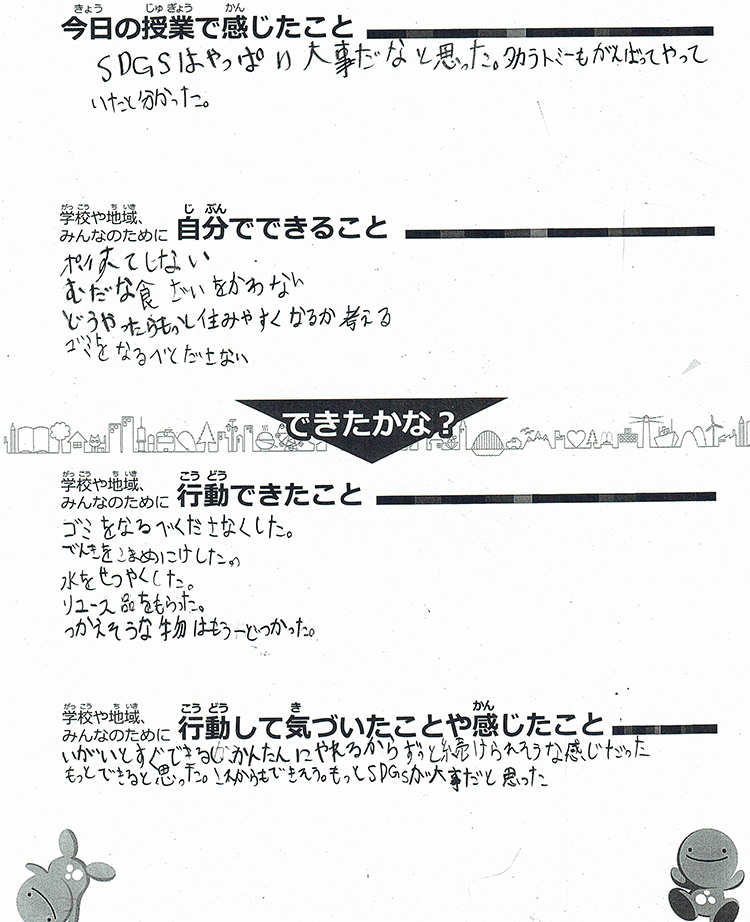 今日の授業で感じたこと
SDGSはやっぱり大事だなと思った。タカラトミーもがんばってやって
いたと分かった。
学校や地域、
みんなのために 自分でできること
ポイすてしない
むだな食ざいをかわない
どうやったらもっと住みやすくなるか考える
ゴミをなるべくださない
できたかな?
学校や地域、
みんなのために 行動できたこと
ゴミをなるべくださなくした。
でんきをこまめにけした。
水をせつやくした。
リユース品をもらった。
つかえそうな物はもう一どつかった。
学校や地域、
みんなのために 行動して気づいたことや感じたこと
いがいとすぐできるしかんたんにやれるからずっと続けられそうな感じだった
もっとできると思った。これからもできそう。もっとSDGsが大事だと思った